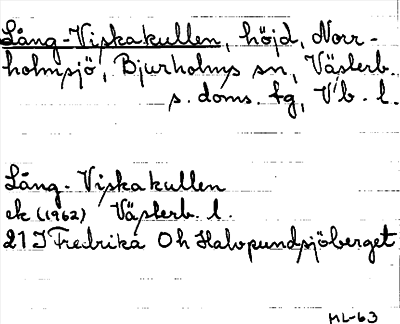 Lång-Viskakullen, höjd, Norr-
holmsjö, Bjurholms sn, Västerb.
s. doms. tg, V'b. l.
Lång-Viskakullen
ek (1962) Västerb. l.
21 I Fredrika 0 h Halvpundsjöberget
ML-63